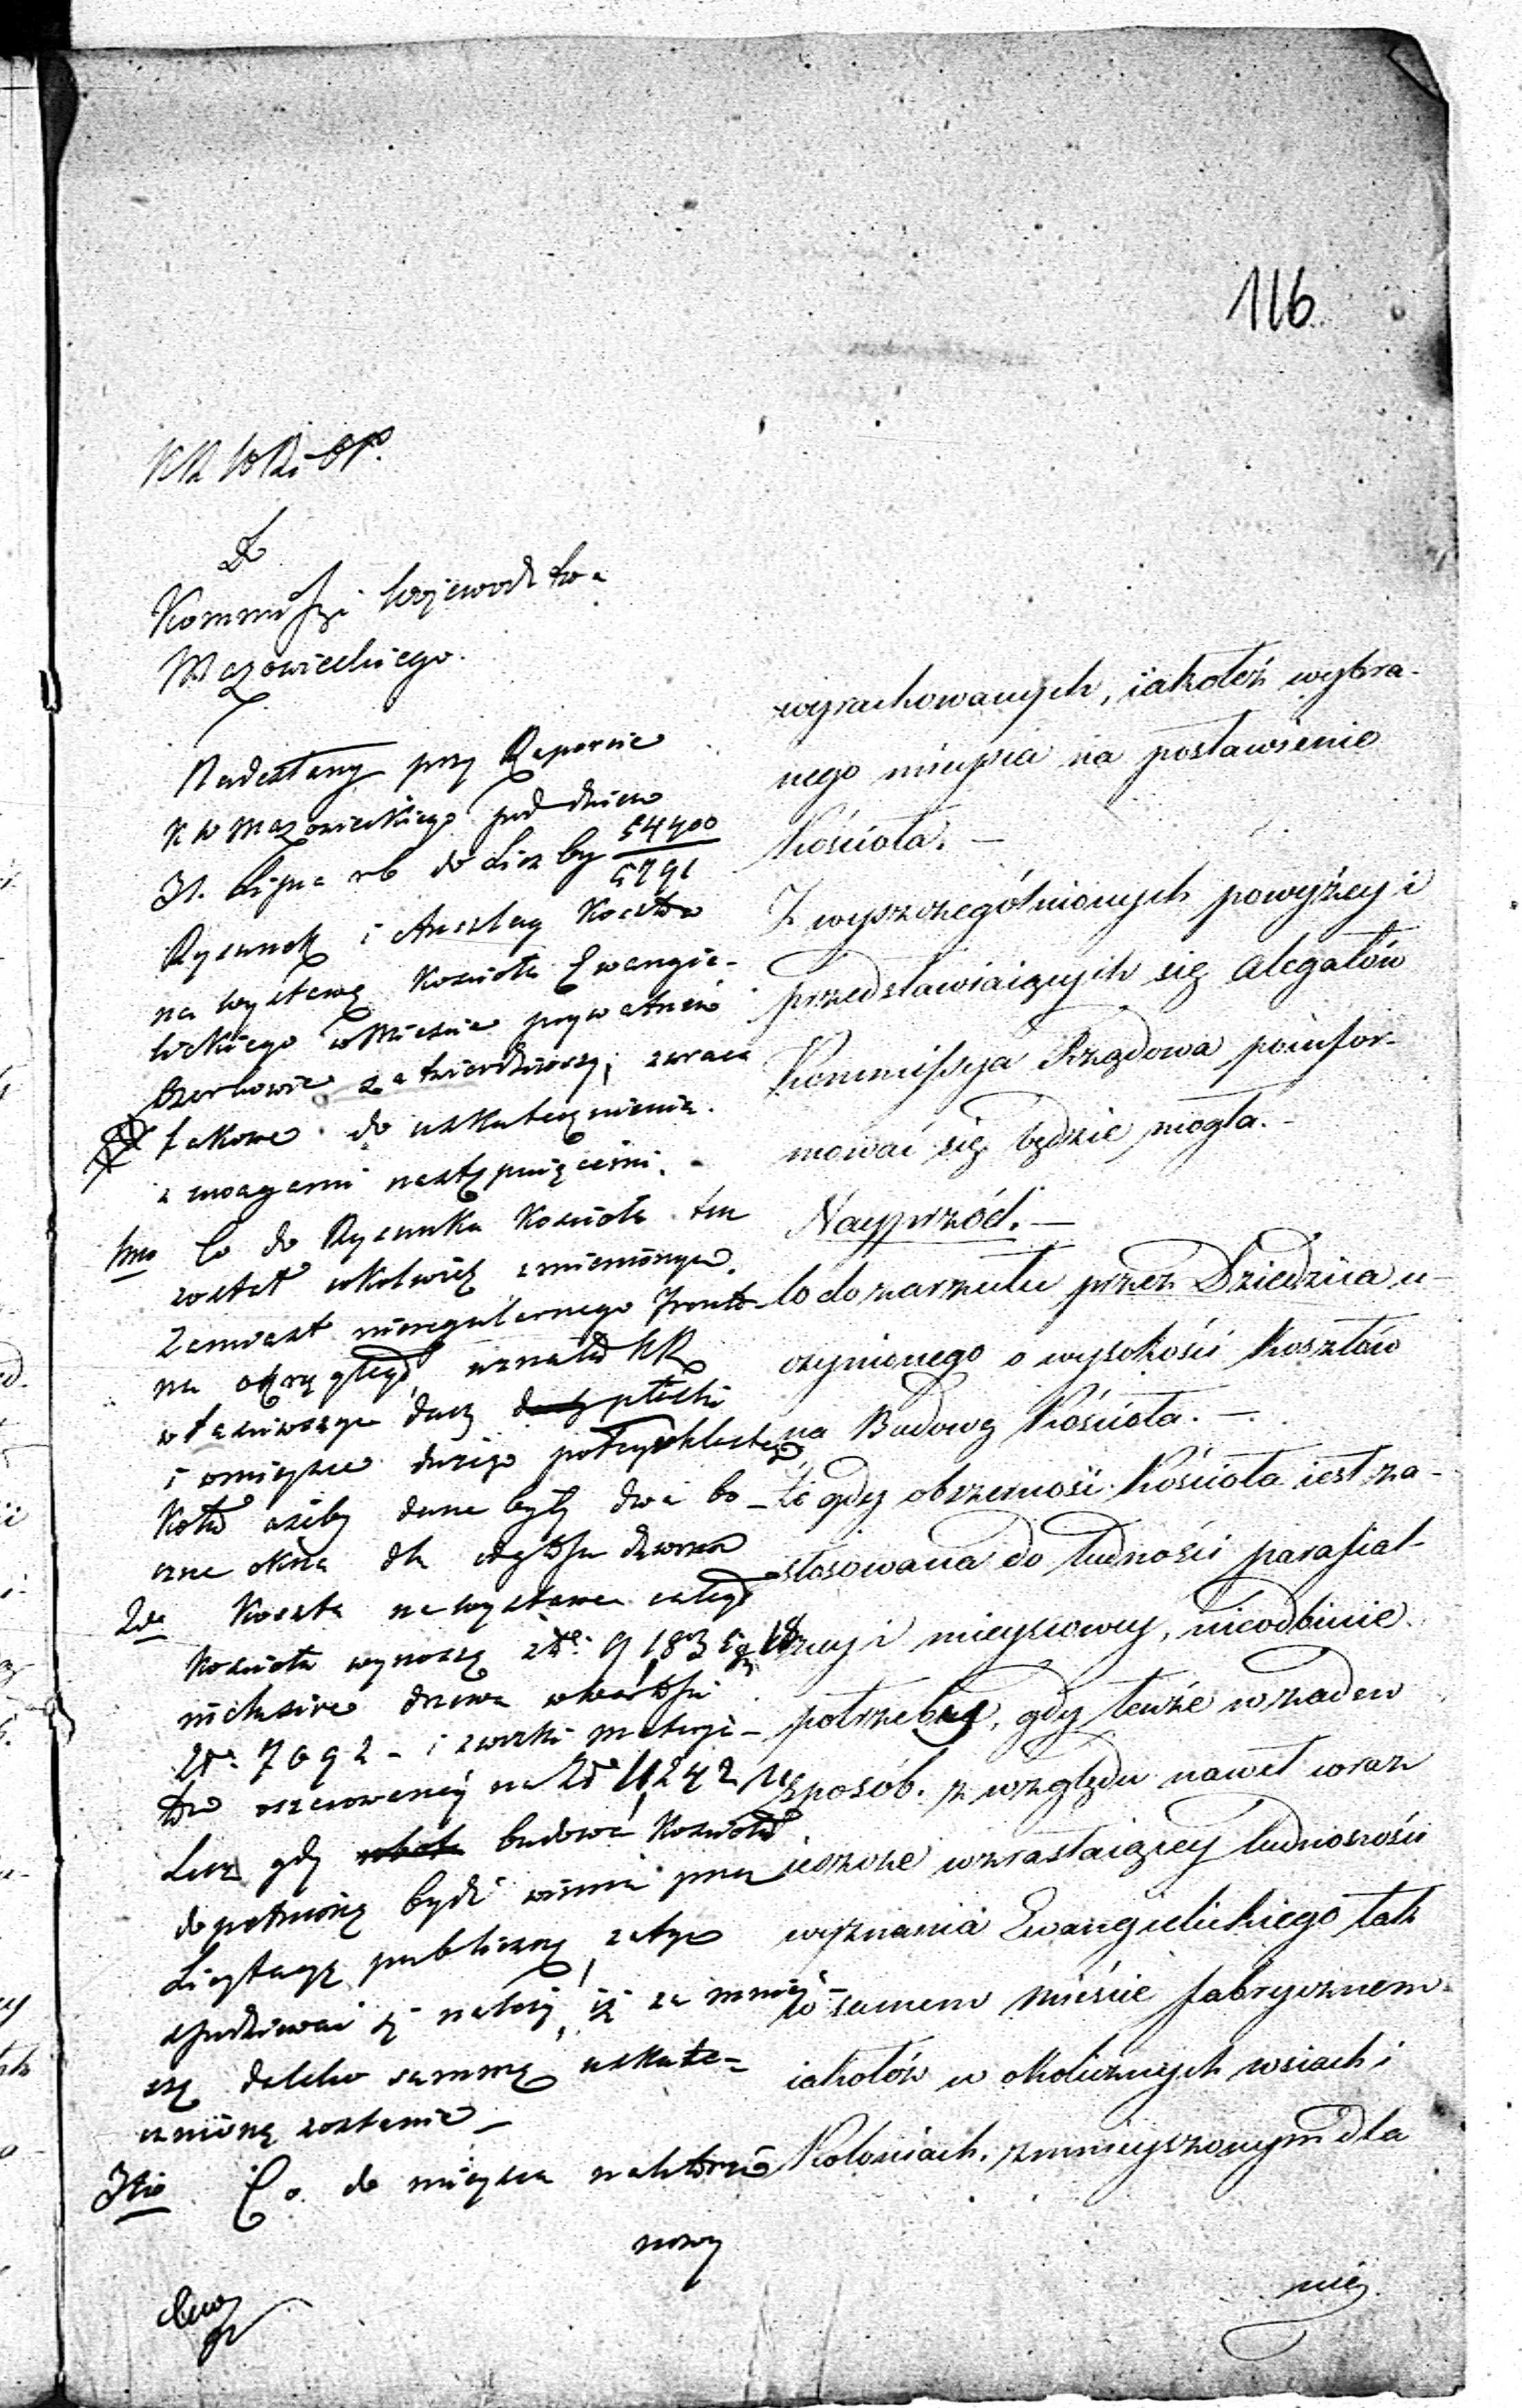 116
KRWRiOP.
Do
Kommissyi Wojewodztwa
Mazowieckiego.
Nadesłany przy Raporcie
KW Mazowieckiego pod dniem
31. Lipca rb do Liczby 54400/5791
Rysunek i Anszlag Kosztów
na wystawę Kościoła Ewangie-
lickiego w Mieście prywatnem
Ozorkowie zatwierdziwszy, zwraca
takowe do uskutecznienia
z uwagami następuiącemi. -
1mo Co do Rysunku Kościoła ten
został cokolwiek zmieniony
Zamiast nieregularnego Frontu
na okrągły, uznała KR
właściwszym dać płaski
i w mieysce dużego
ażeby dane były dwa bo-
czne okna dla
2do Koszta na wystawę całego
Kościoła wynoszą złp. 91835 gr 18
inclusive drzewa w wartości
złp. 7692 - i zwózki materya-
łów oszacowaney na Zł 11,242
Lecz gdy budowa Kościoła
dopełnioną bydź winna przez
Licytacyę publiczną, zatym
spodziewać się należy, iż za mniey-
szą daleko summę uskute-
cznioną zostanie -
3tio Co do mieysca na którem
nowy
wyrachowanych, iakoteż wybra-
nego mieysca na postawienie
Kościoła. -
Z wyszczególnionych powyżey i
przedstawiaiących się Alegatów
Kommissya Rządowa poinfor-
mować się będzie mogła. -
Nayprzód. -
Co do zarzutu przez Dziedzica u-
czynionego o wysokości Kosztów
na Budowę Kościoła. -
Że gdy obszerność Kościoła iest za-
stosowana do ludności parafial-
ney i mieyscowey, nieodbicie
potrzebną, gdy tenże w żaden
sposób. z względu nawet wraz
ieszcze wzrastaiącey ludności
wyznania Ewangielickiego tak
w samem mieście fabrycznem
iakotóż w okolicznych wsiach i
Koloniach, zmnieyszonym dla
niey